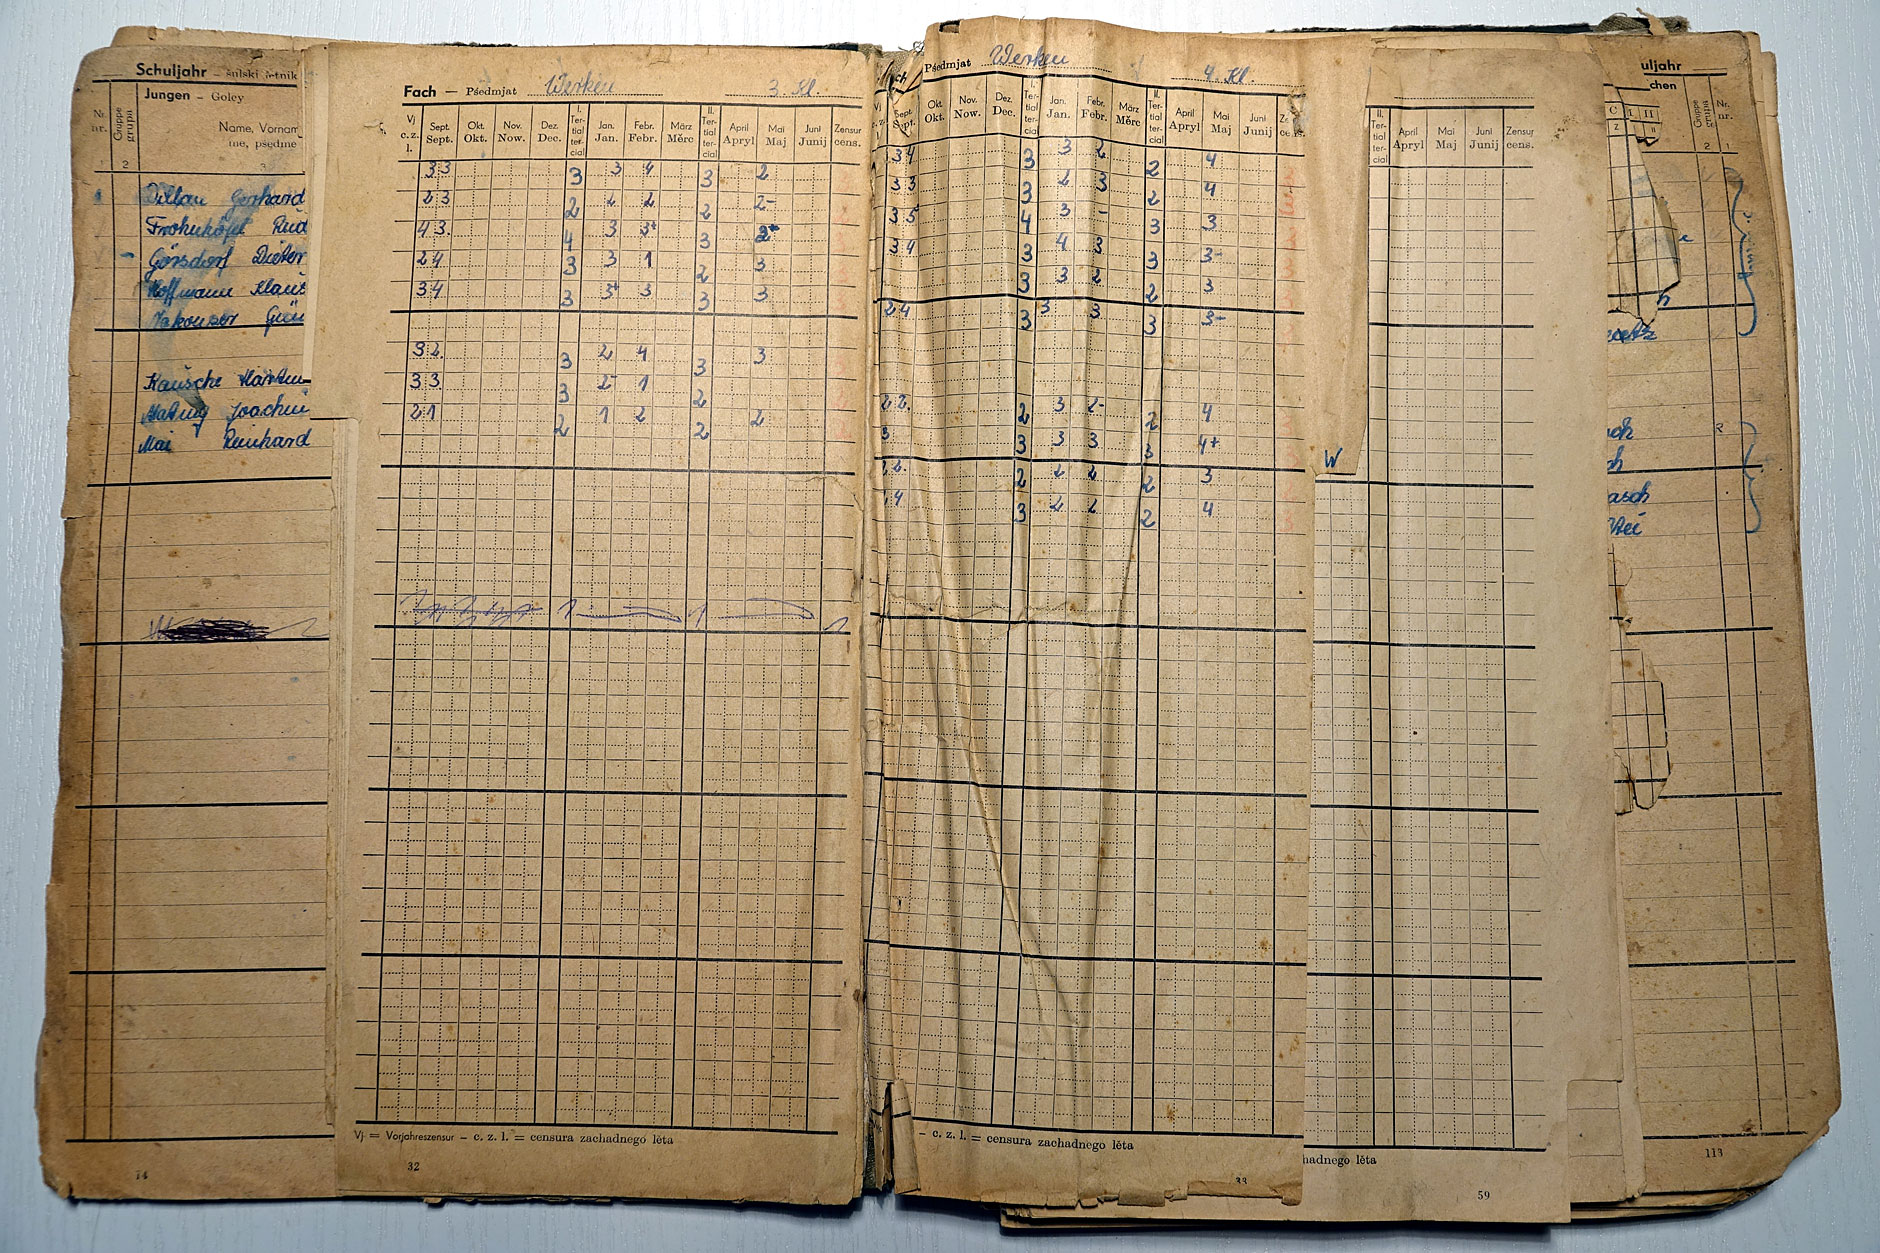 Schuljahr – šulski lětnik
Jungen – Goley
Nr. nr.
Gruppe grupa
Name, Vornam
me, pśedme
2
Gerhard
Görsdorf Dieter
Hoffmann Klaus
Kausche
Joachim
Mai Reinhard
14
Fach — Pśedmjat Werken 3. Kl.
Vj c. z. l.
Sept. Sept.
Okt. Okt.
Nov. Now.
Dez. Dec.
I. Ter- tial ter- cial
Jan. Jan.
Febr. Febr.
März Měrc
II. Ter- tial ter- cial
April Apryl
Mai Maj
Juni Junij
Zensur cens.
3 3 3 3 4 3 2
2 3 2 2 2 2 2-
4 3 4 3 3+ 3 2+
2 4 3 3 1 2 3
3 4 3 3+ 3 3 3
3 2 3 2 4 3 3
3 3 3 2- 1 2
2 1 2 1 2 2 2
Vj = Vorjahreszensur – c. z. l. = censura zachadnego lěta
32
ch
Pśedmjat Werken 4. Kl.
Vj
Sept. Sept.
Okt. Okt.
Nov. Now.
Dez. Dec.
I. Ter- tial ter- cial
Jan. Jan.
Febr. Febr.
März Měrc
II. Ter- tial ter- cial
April Apryl
Mai Maj
Juni Junij
Ze cens.
3 4 3 3 2 2 4
3 3 3 2 3 2 4
3 5 4 3 - 3 3
3 4 3 4 3 3 3-
3 3 2 2 3
2 4 3 3 3 3 3-
2 2. 2 3 2- 2 4
3 3 3 3 3 4+
2. 2 2 2 2 3
4 3 2 2 2 4
– c. z. l. = censura zachadnego lěta
33
W
II. Ter- tial ter- cial
April Apryl
Mai Maj
Juni Junij
Zensur cens.
hadnego lěta
59
uljahr
chen
C I II
z
Gruppe grupa
Nr. nr.
2 1
ch
asch
113